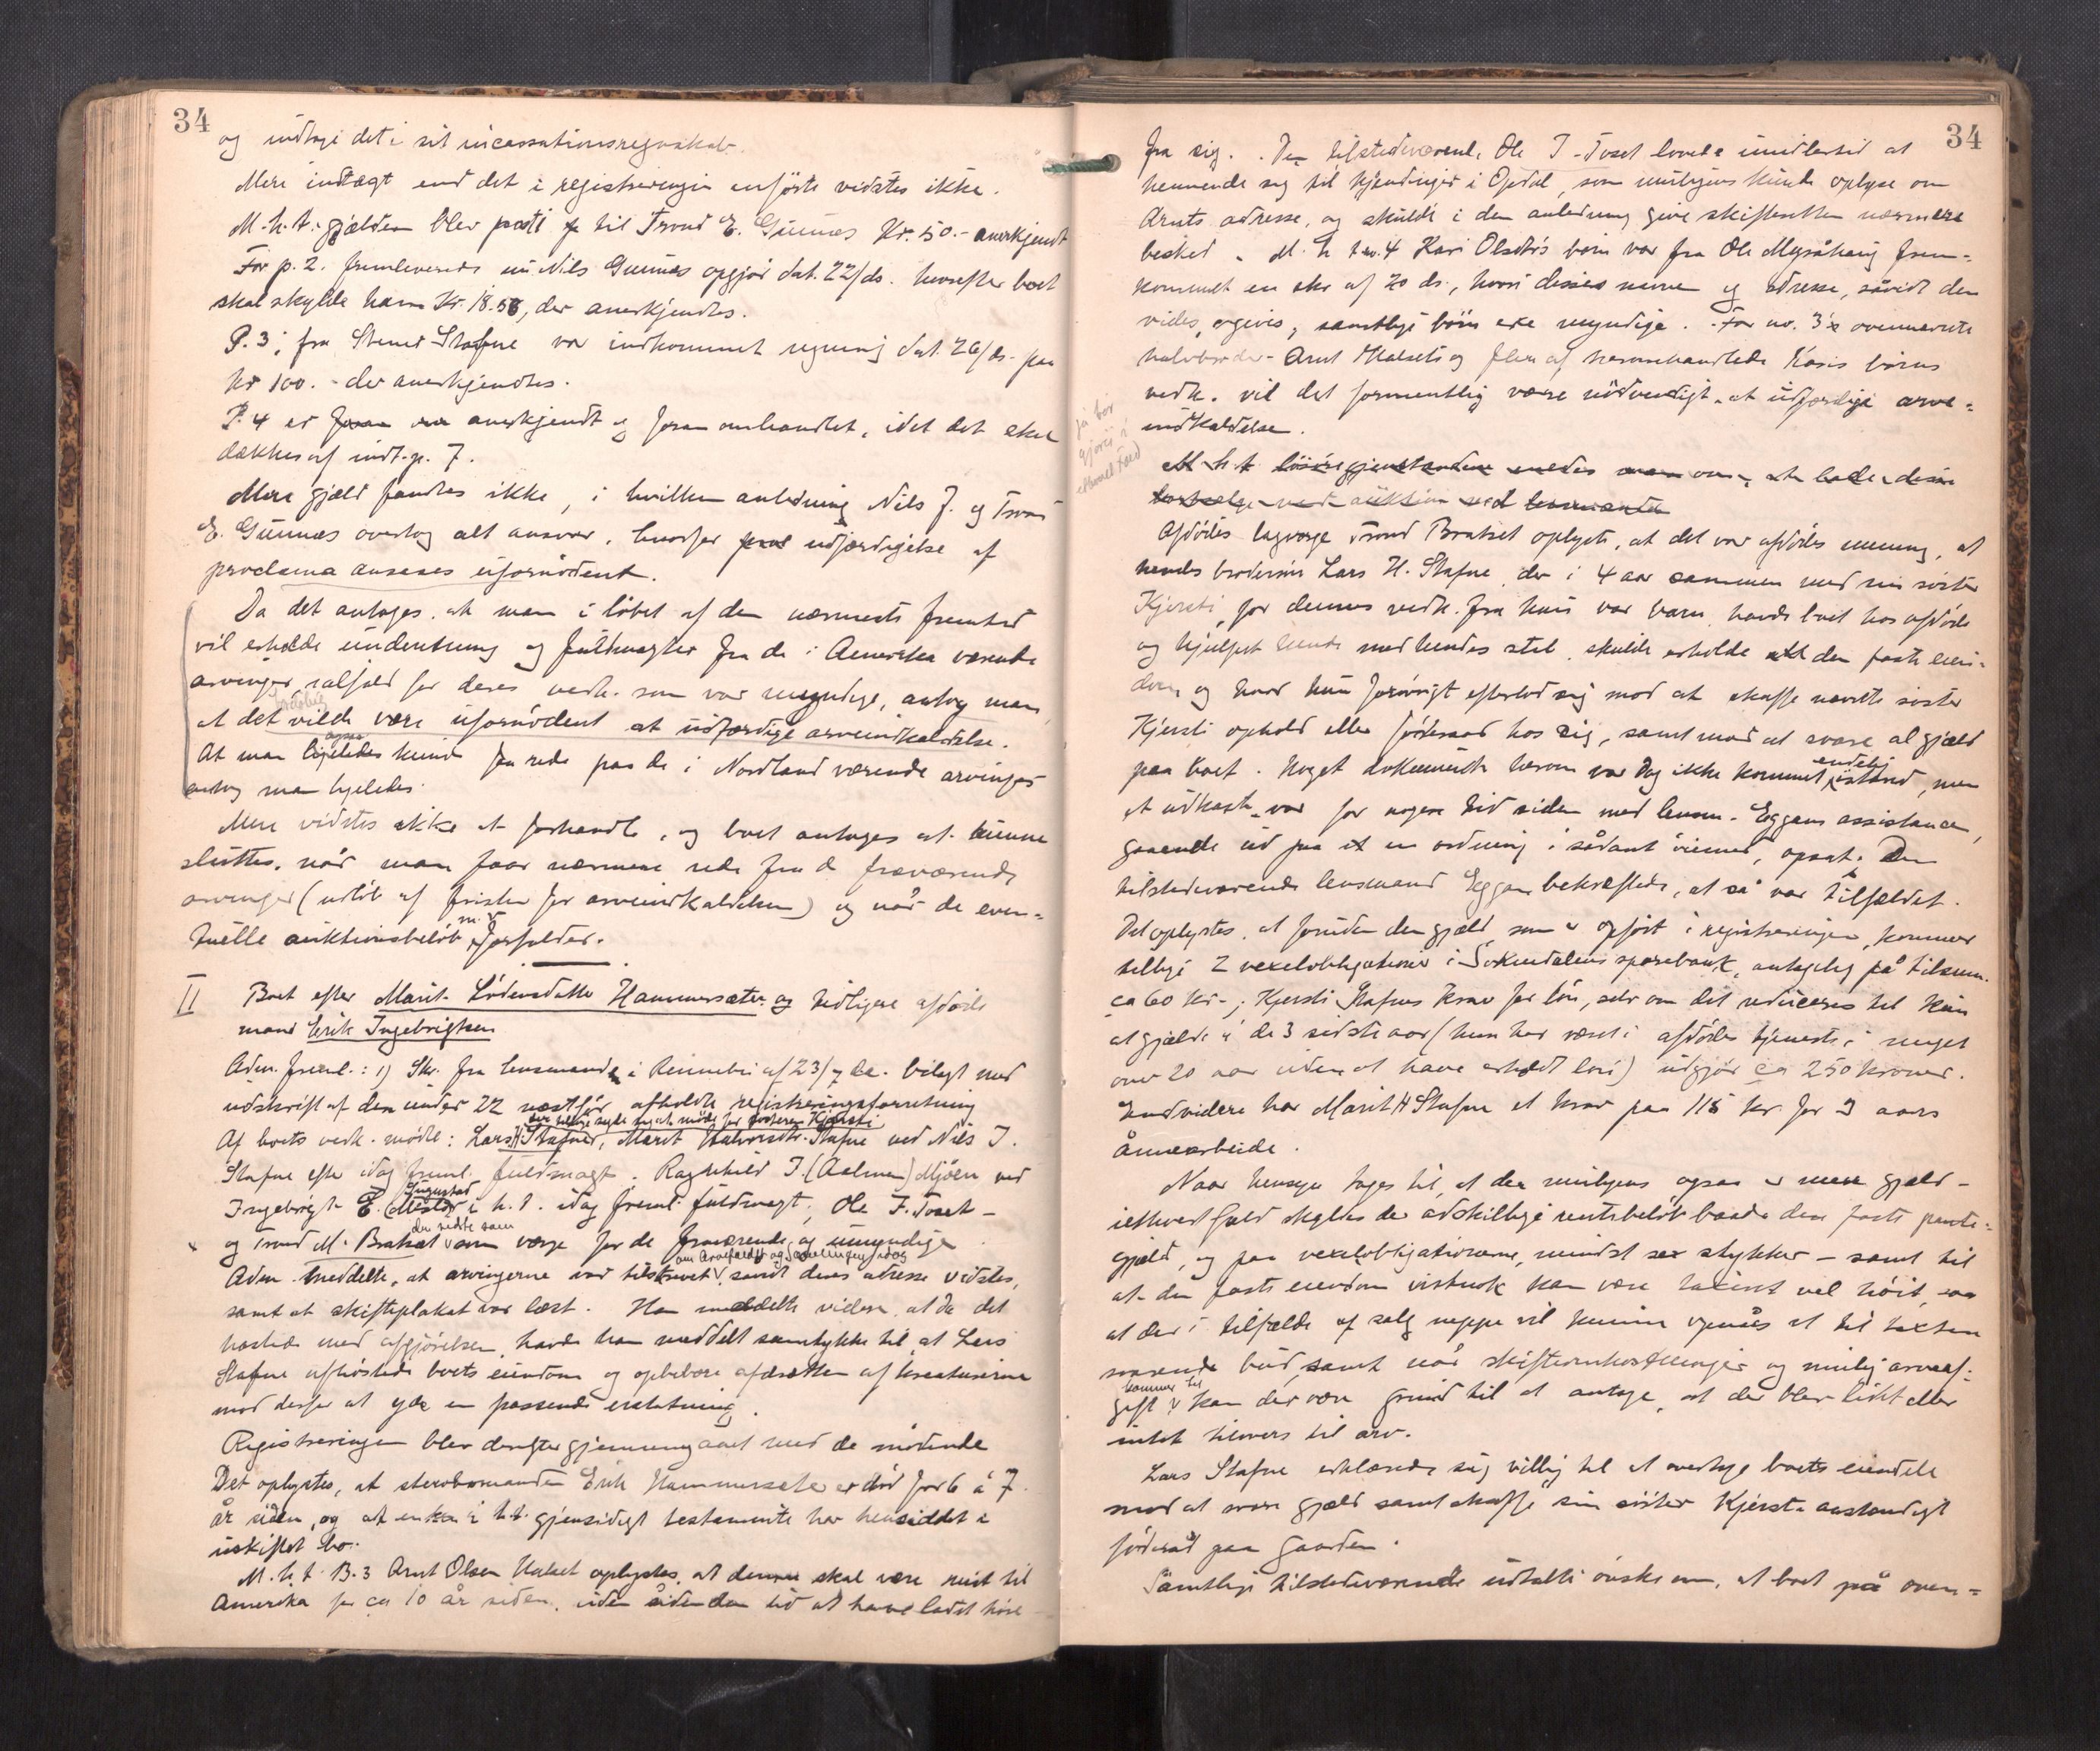 34
og indtage det i sit incassationsregnskab.
Mere indtægt end det i registreringen anførte vidstes ikke.
M.h.t. gjælden blev post 1 til Trond E. Gunnæs Kr. 50.- anerkjendt
For p. 2. fremleveredes en Nils Gunnæs opgjør dat. 22/ds. hvorefter boet
skal skylde ham Kr. 18.56, der anerkjendtes.
P. 3; fra Stener Stafne var indkommet regning dat. 26/ds. paa
Kr 100.- der anerkjendtes.
P. 4 er anerkjendt og foran omhandlet, idet det skal
dækkes af indt. p. 7.
Mere gjæld fandtes ikke, i hvilken anledning Nils J. og Trond
E. Gunnæs overtog alt ansvar, hvorfor udfærdigelse af
proclama ansees ufornødent.
Da det antages, at man i løbet af den nærmeste fremtid
vil erholde underretning og fuldmagter fra de i Amerika værende
arvinger, ialfald for deres vedk. som var myndige, antog man,
at det vilde være ufornødent at udfærdige arveindkaldelse.
At man ligeledes kunde faa rede paa de i Nordland værende arvinger
antog man ligeledes.
Mere vidstes ikke at forhandle, og boet antages at kunne
sluttes, når man faar nærmere rede fra de fraværende
arvinger (udløb af fristen for arveindkaldelsen) og når de even-
tuelle auktionsbeløb m.v. forfalder.
II Boet efter Marit Lodensdatter Hammersæter og tidligere afdøde
mand Erik Ingebrigtsen
Adm. freml.: 1) Skr. fra lensmanden i Rennebu af 23/7 ds. bilagt med
udskrift af den under 22 næstfør afholdte registreringsforretning
der tillige sagde sig at møde for søsteren Kjersti
Af boets vedk. mødte: Lars H Stafne, Marit Halvorsdtr. Stafne ved Nils J.
Stafne efter idag freml. fuldmagt. Ragnhild I. (Aalmen) Mjøen ved
Ingebrigt E. i h.t. idag freml. fuldmagt; Ole J. Toset -
og Trond M. Bratset den sidste som værge for de fraværende og umyndige
Adm. meddelte, at arvingerne var tilskrevet om Arvefaldet og Samlingen idag savidt deres adresse vidstes,
samt at skifteplakat var læst. Han meddelte videre, at da det
hastede med afgjørelsen, havde han meddelt samtykke til, at Lars
Stafne afhøstede boets eiendom og oppebære afdrætten af kreaturerne
mod derfor at yde en passende erstatning.
Registreringen blev derefter gjennemgaaet med de mødende
Det oplystes, at sterbomanden Erik Hammersæter er død for 6 á 7
år siden, og at enken i h.t. gjensidigt testamente har hensiddet i
uskiftet bo.
M.h.t. B. 3 Arnt Olsen Halset oplystes, at denne skal være reist til
Amerika for ca 10 år siden, uden siden den tid at have ladet høre
34
fra sig. Den tilstedeværende Ole J. Toset lovede imidlertid at
henvende sig til kjendinger i Opdal, som muligens kunde oplyse om
Arnts adresse, og skulde i den anledning give skifteretten nærmere
besked. M.h.t. no. 4 Kari Olsdtrs børn var fra Ole Mysåhaug frem-
kommet en skr. af 20 ds., hvori disses navne og adresse, såvidt den
vides, opgives; samtlige børn ere myndige. For no. 3's ovennævnte
halvbroder Arnt Halsets og flere af nævnte Karis børns
vedk. vil det formentlig være nødvendigt, at udfærdige arve-
indkaldelse.
M.h.t. løsøregjenstandene enedes man om, at lade disse
bortsælge ved auktion ved lensmanden
Afdødes lagværge Trond Bratset oplyste, at det var afdødes mening, at
hendes brodersøn Lars H. Stafne, der i 4 aar sammen med sin søster
Kjersti, for dennes vedk. fra hun var barn, havde boet hos afdøde
og hjulpet hende med hendes stel, skulde erholde den faste eien-
dom, og hvad hun forøvrigt efterlod sig mod at skaffe nævnte søster
Kjersti ophold eller føderaad hos sig, samt mod at svare al gjæld
paa boet. Noget dokument herom var dog ikke kommet endelig istand, men
et udkast var for nogen tid siden med lensm. Eggans assistance,
gaaende ud paa en ordning i sådant øiemed, opsat. Den
tilstedeværende lensmand Eggan bekræftede, at så var tilfældet.
Det oplystes, at foruden den gjæld, som er opført i registreringen, kommer
tillige 2 vexelobligationer i Soknedalens sparebank, antagelig på tilsam.
ca 60 kr.; Kjersti Stafnes krav for løn, selv om det reduceres til kun
at gjælde i de 3 sidste aar (hun har været i afdødes tjeneste i meget
over 20 aar uden at have erholdt løn) udgjør ca 250 kroner.
Endvidere har Marit H Stafne et krav paa 115 kr. for 3 aars
ånnearbeide.
Naar hensyn tages til, at der muligens ogsaa er mere gjæld -
iethvertfald skyldes der adskillige rentebeløb baade den faste pante-
gjæld, og paa vexelobligationerne, mindst sex stykker - samt til
at den faste eiendom virkelig kan være taxeret vel høit, saa
at der i tilfælde af salg neppe vil kunne opnåes et til taxten
svarende bud, samt når skifteomkostninger og mulig arveaf-
gift kommer til, kan der være grund til at antage, at der blev lidet eller
intet tilovers til arv.
Lars Stafne erklærede sig villig til at overtage boets eiendele
mod at svare gjæld samt skaffe sin søster Kjersti anstændigt
føderåd paa gaarden.
Samtlige tilstedeværende udtalte ønske om, at boet på oven-